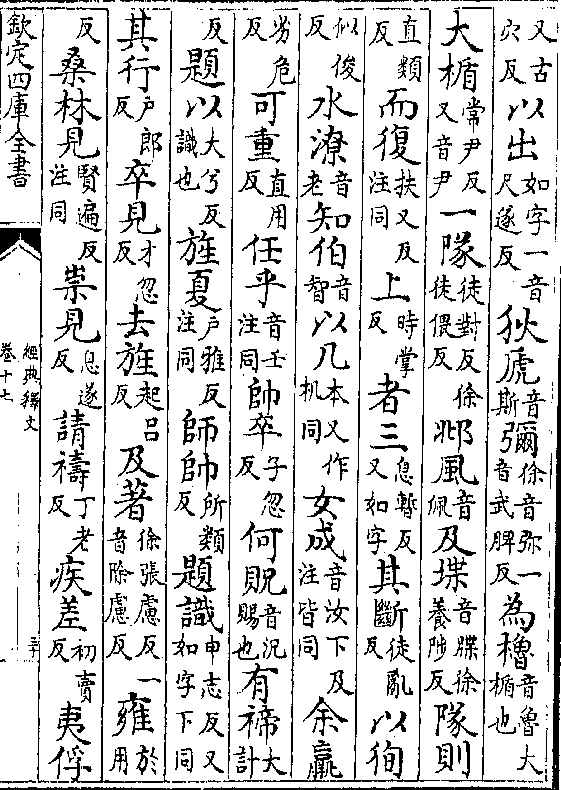 又古穴反以出如字一音尺遂反狄虒音斯彌徐音弥一音武脾反為櫓音魯大楯也
大楯常尹反又音尹一隊徒對反徐徒偎反邶風音佩及堞音牒徐養陟反隊則
直類反而復扶又反注同上時掌反者三息暫反又如字其斷徒亂反以徇
似俊反水潦音老知伯音智以几本又作机同女成音汝下及注皆同余羸
劣危反可重直用反任乎音壬注同帥卒子忽反何貺音況賜也有禘大計
反題以大兮反識也旌夏户雅反注同師帥所類反題識申志反又如字下同
其行户郎反卒見才忽反去旌起呂反及著徐張慮反一音除慮反雍於用
反桑林見賢遍反注同祟見息遂反請禱丁老反疾差初賣反夷俘
欽定四庫全書
經典釋文
卷十七